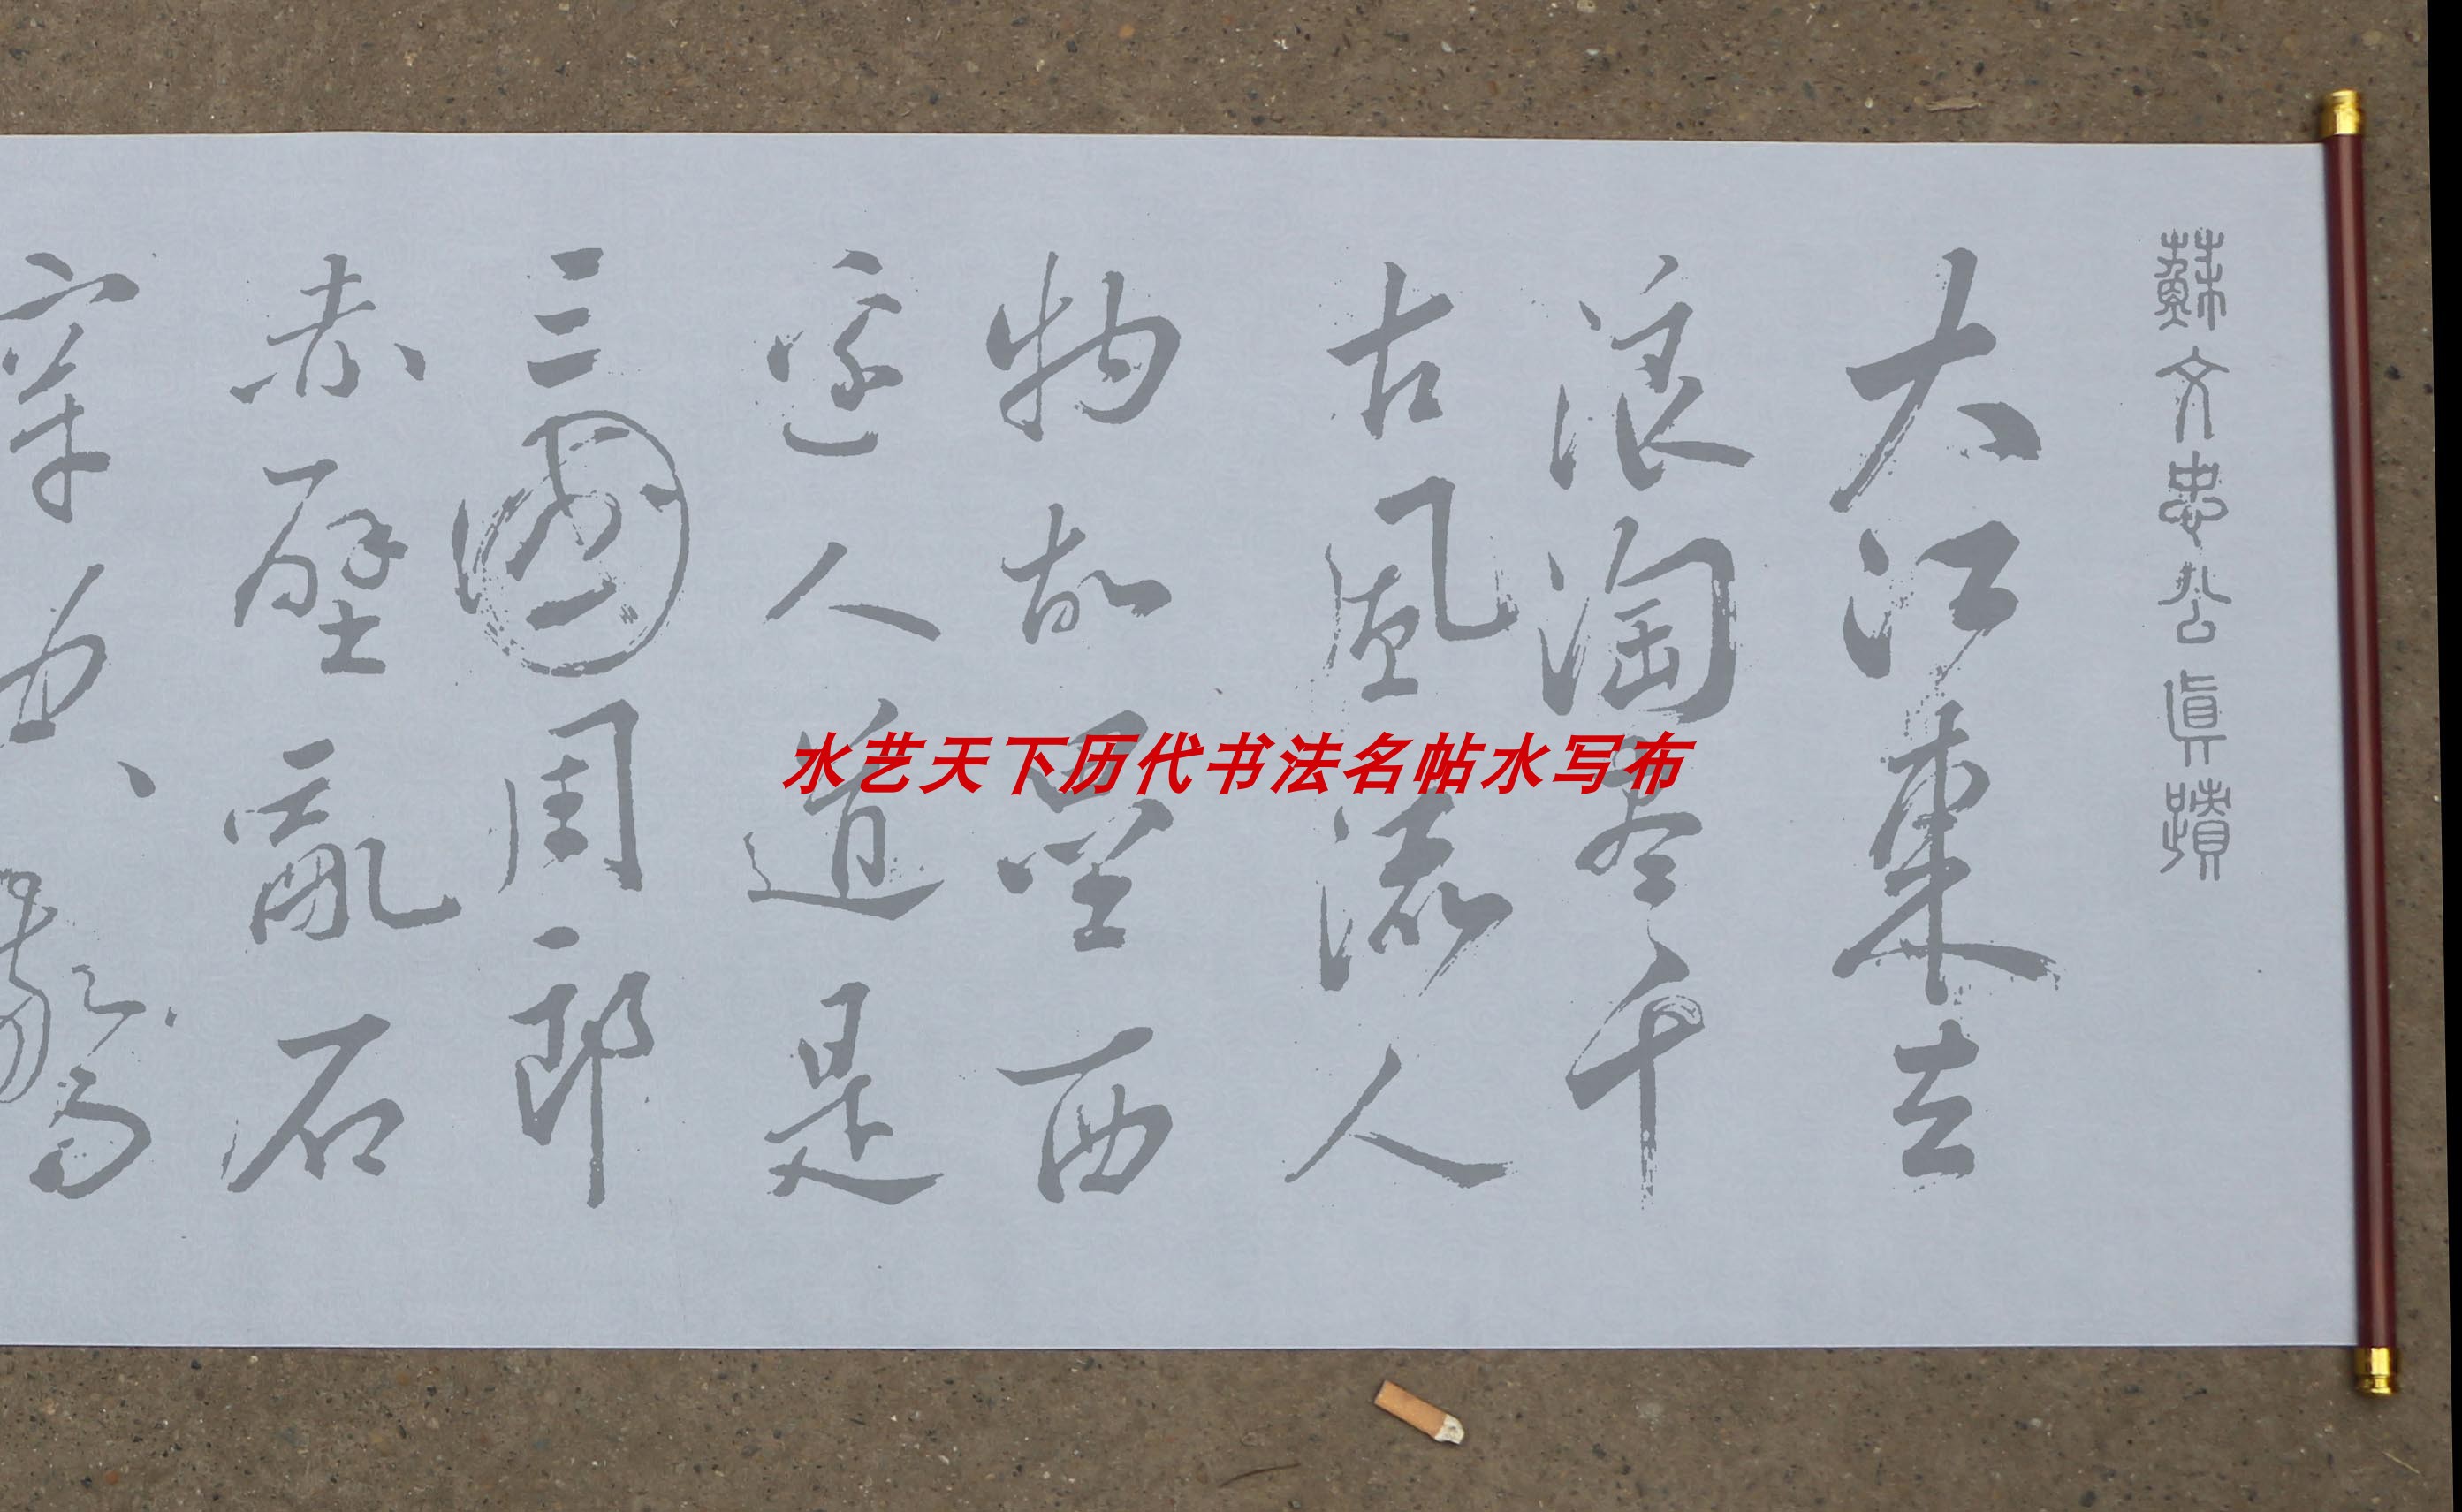 蘇文忠公真蹟
大江東去
浪淘尽千
古風流人
物故壘西
邊人道是
三國周郎
赤壁亂石
穿空驚
水艺天下历代书法名帖水写布